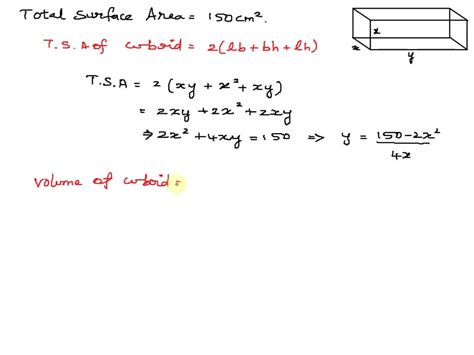 Total Surface Area = 150cm².
T.S.A of cuboid = 2(lb + bh + lh)
x
x
y
T.S.A = 2(xy + x² + xy)
= 2xy + 2x² + 2xy
⇒ 2x² + 4xy = 150 ⇒ y = (150-2x²)/4x
Volume of cuboid =